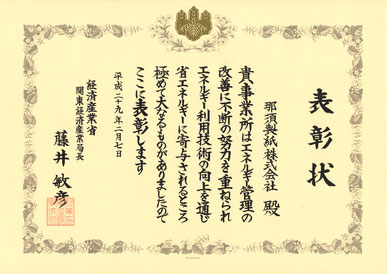 表彰状
那須製紙株式会社 殿
貴事業所はエネルギー管理の
改善に不断の努力を重ねられ
エネルギー利用技術の向上を通じ
省エネルギーに寄与されるところ
極めて大なるものがありましたので
ここに表彰します
平成二十九年二月七日
経済産業省
関東経済産業局長
藤井敏彦